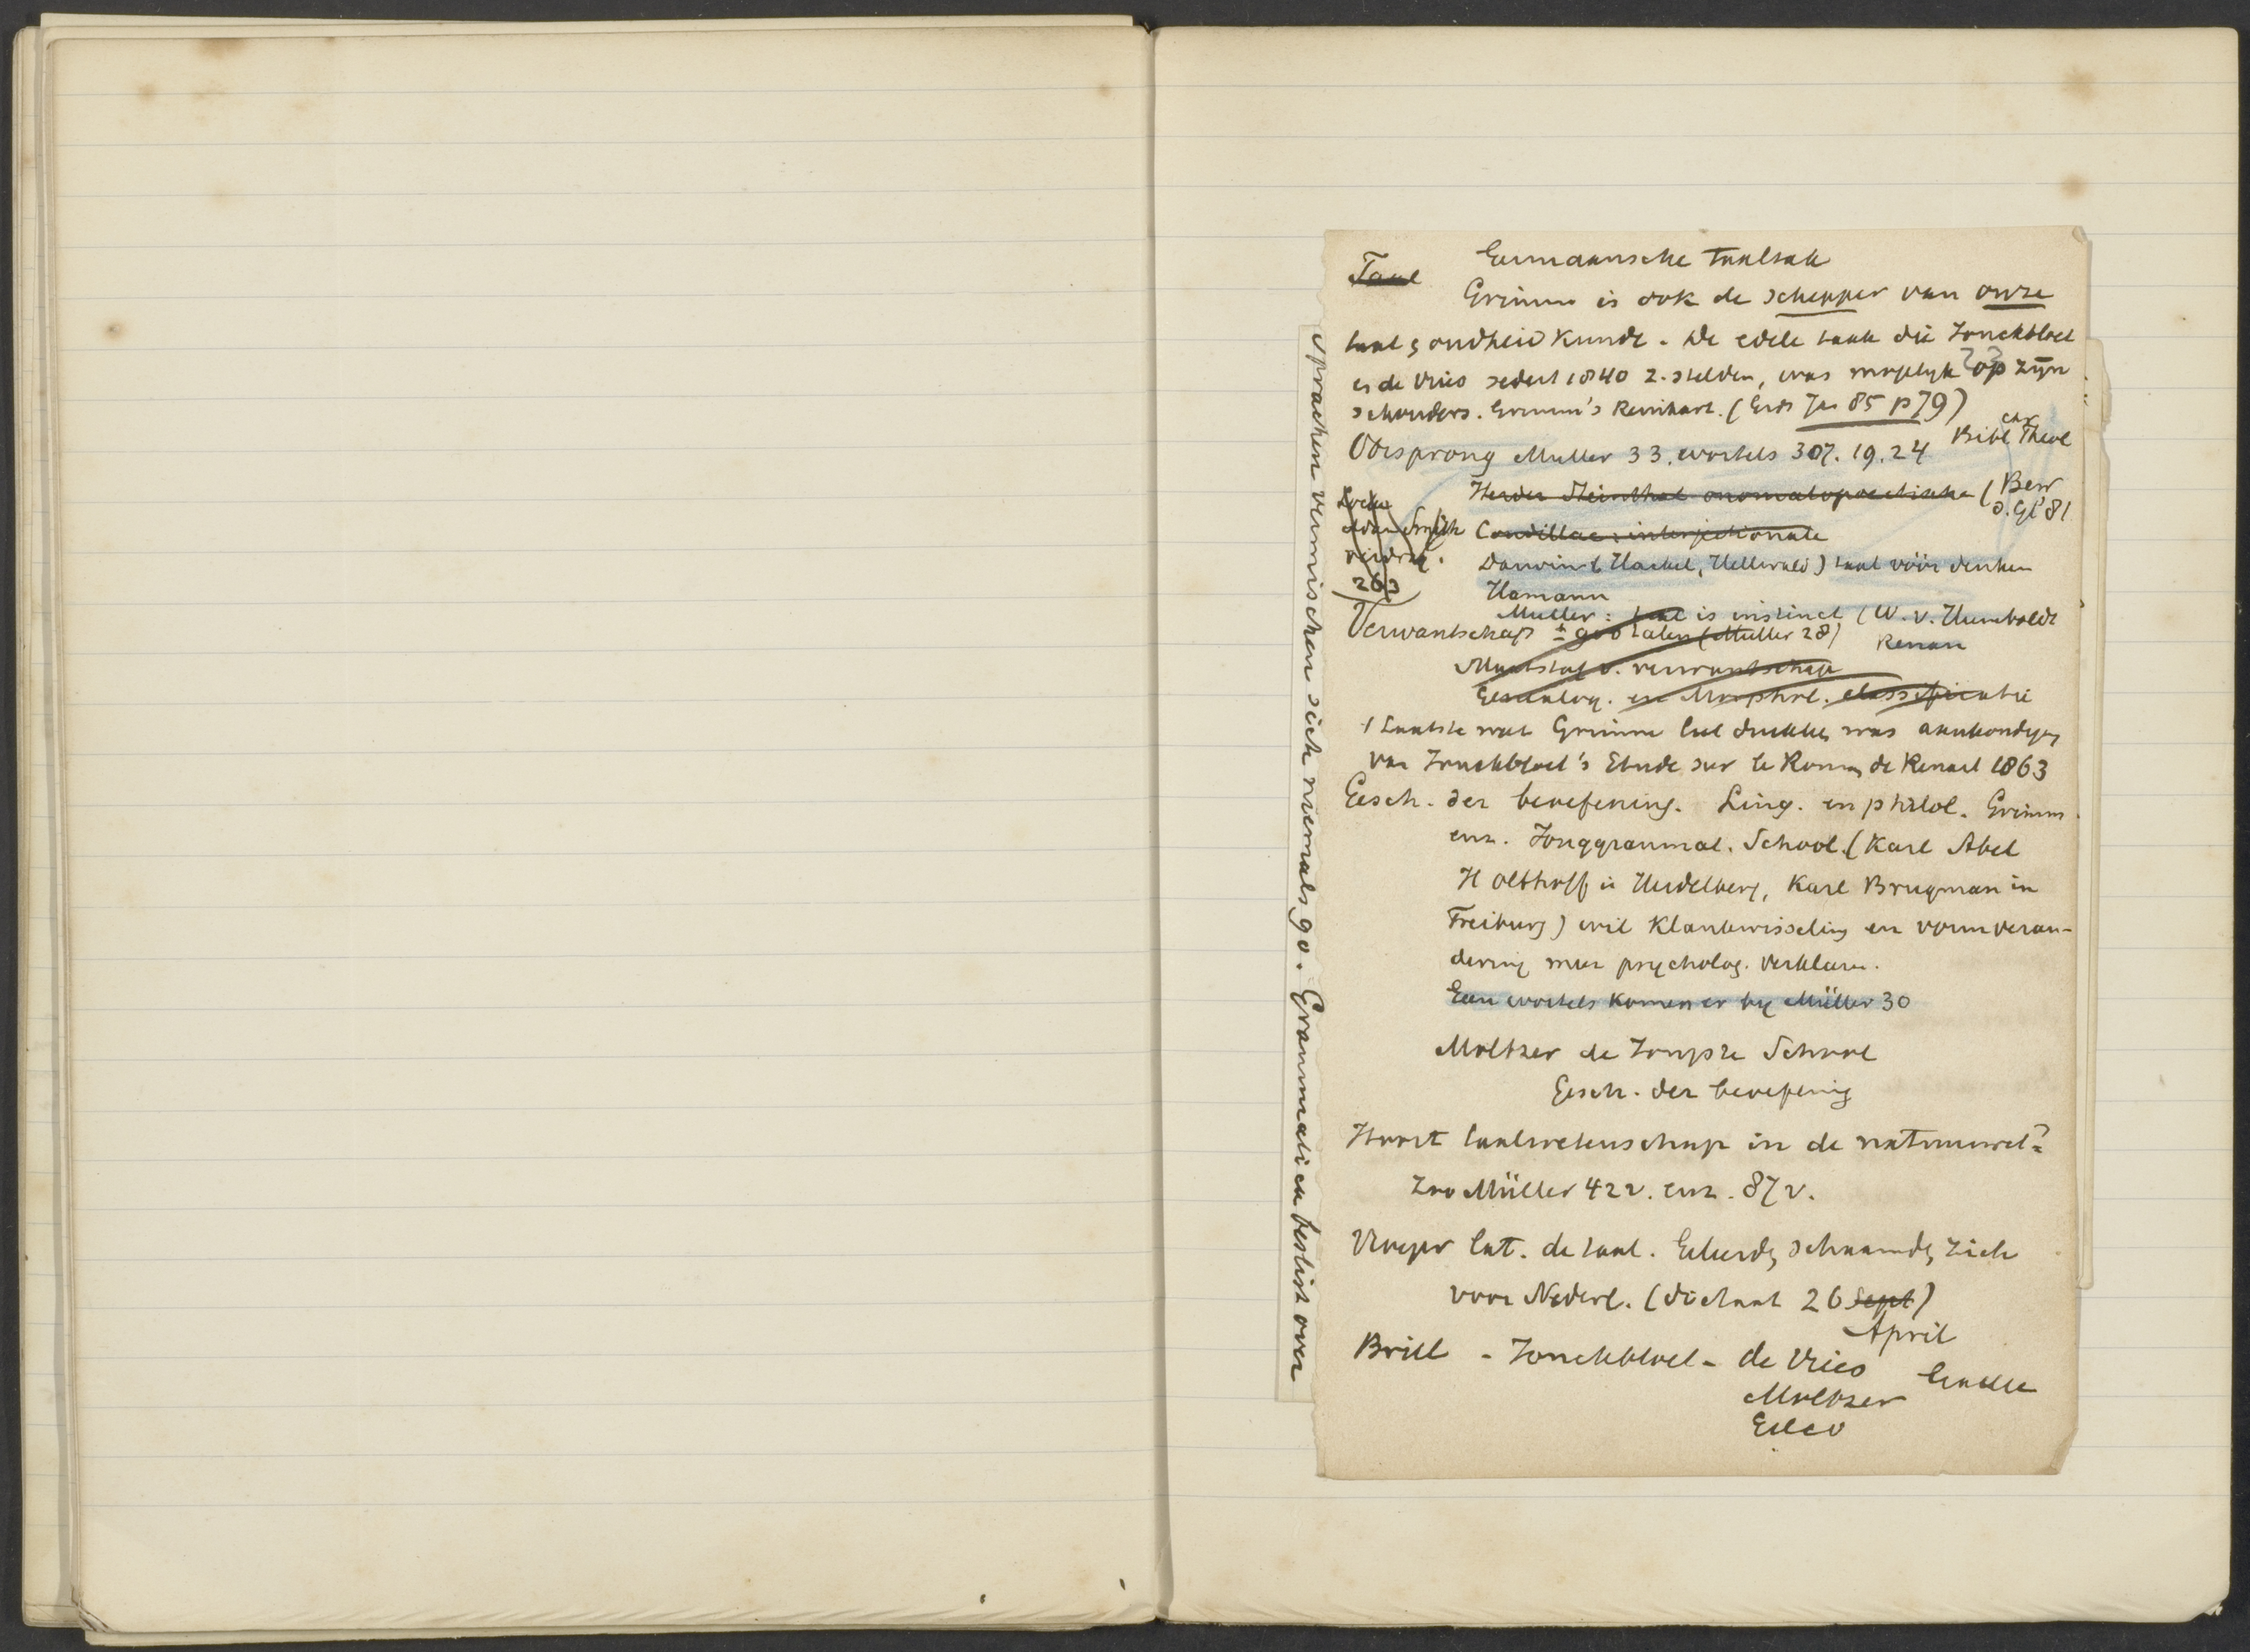 Taal Germaansche taaltak
Grimm is ook de schepper van onze
taal & oudheidkunde. De edele taak die Jonckbloet
en de Vries sedert 1840 z. stelden, was mogelyk op zijn
schouders. Grimm's Reinhart. (Gids Jan 85 p 79)
Oorsprong Muller 33. wortels 307. 19. 24 Bibl chr Theol
Herder Steinthal onomatopoetische (Bew
d. Gl' 81
Locke
Adam Smith Condillac: interjectionale
263
Darwin (Hackel, Hellwald) taal vóór denken
Hamann
Muller: taal is instinct (W. v. Humboldt
Renan
Verwantschap ± 900 talen (Muller 28)
Maatstaf v. verwantschap
Genealog. en Morphol. classificatie
't Laatste wat Grimm liet drukken was aankondiging
van Jonckbloet's Etude sur le Roman de Renart 1863
Gesch. der beoefening. Ling. en philol. Grimm
enz. Jonggrammat. School. (Karl Abel
H Olthoff in Heidelberg, Karl Brugman in
Freiburg) wil klankwisseling en vormveran-
dering meer psycholog. verklaren.
Geen wortels komen er by Müller 30
Moltzer de Jongste School
Gesch. der beoefening
Hoort taalwetenschap in de natuurwet?
Zoo Müller 42 v. enz. 87 v.
Vroeger Lat. de taal. Geleerden schaamden zich
voor Nederl. (dictaat 26 Sept)
April
Brill - Jonckbloet - de Vries
Moltzer
Eelco
sprachen vermischen sich niemals 90. Grammatica beslist over